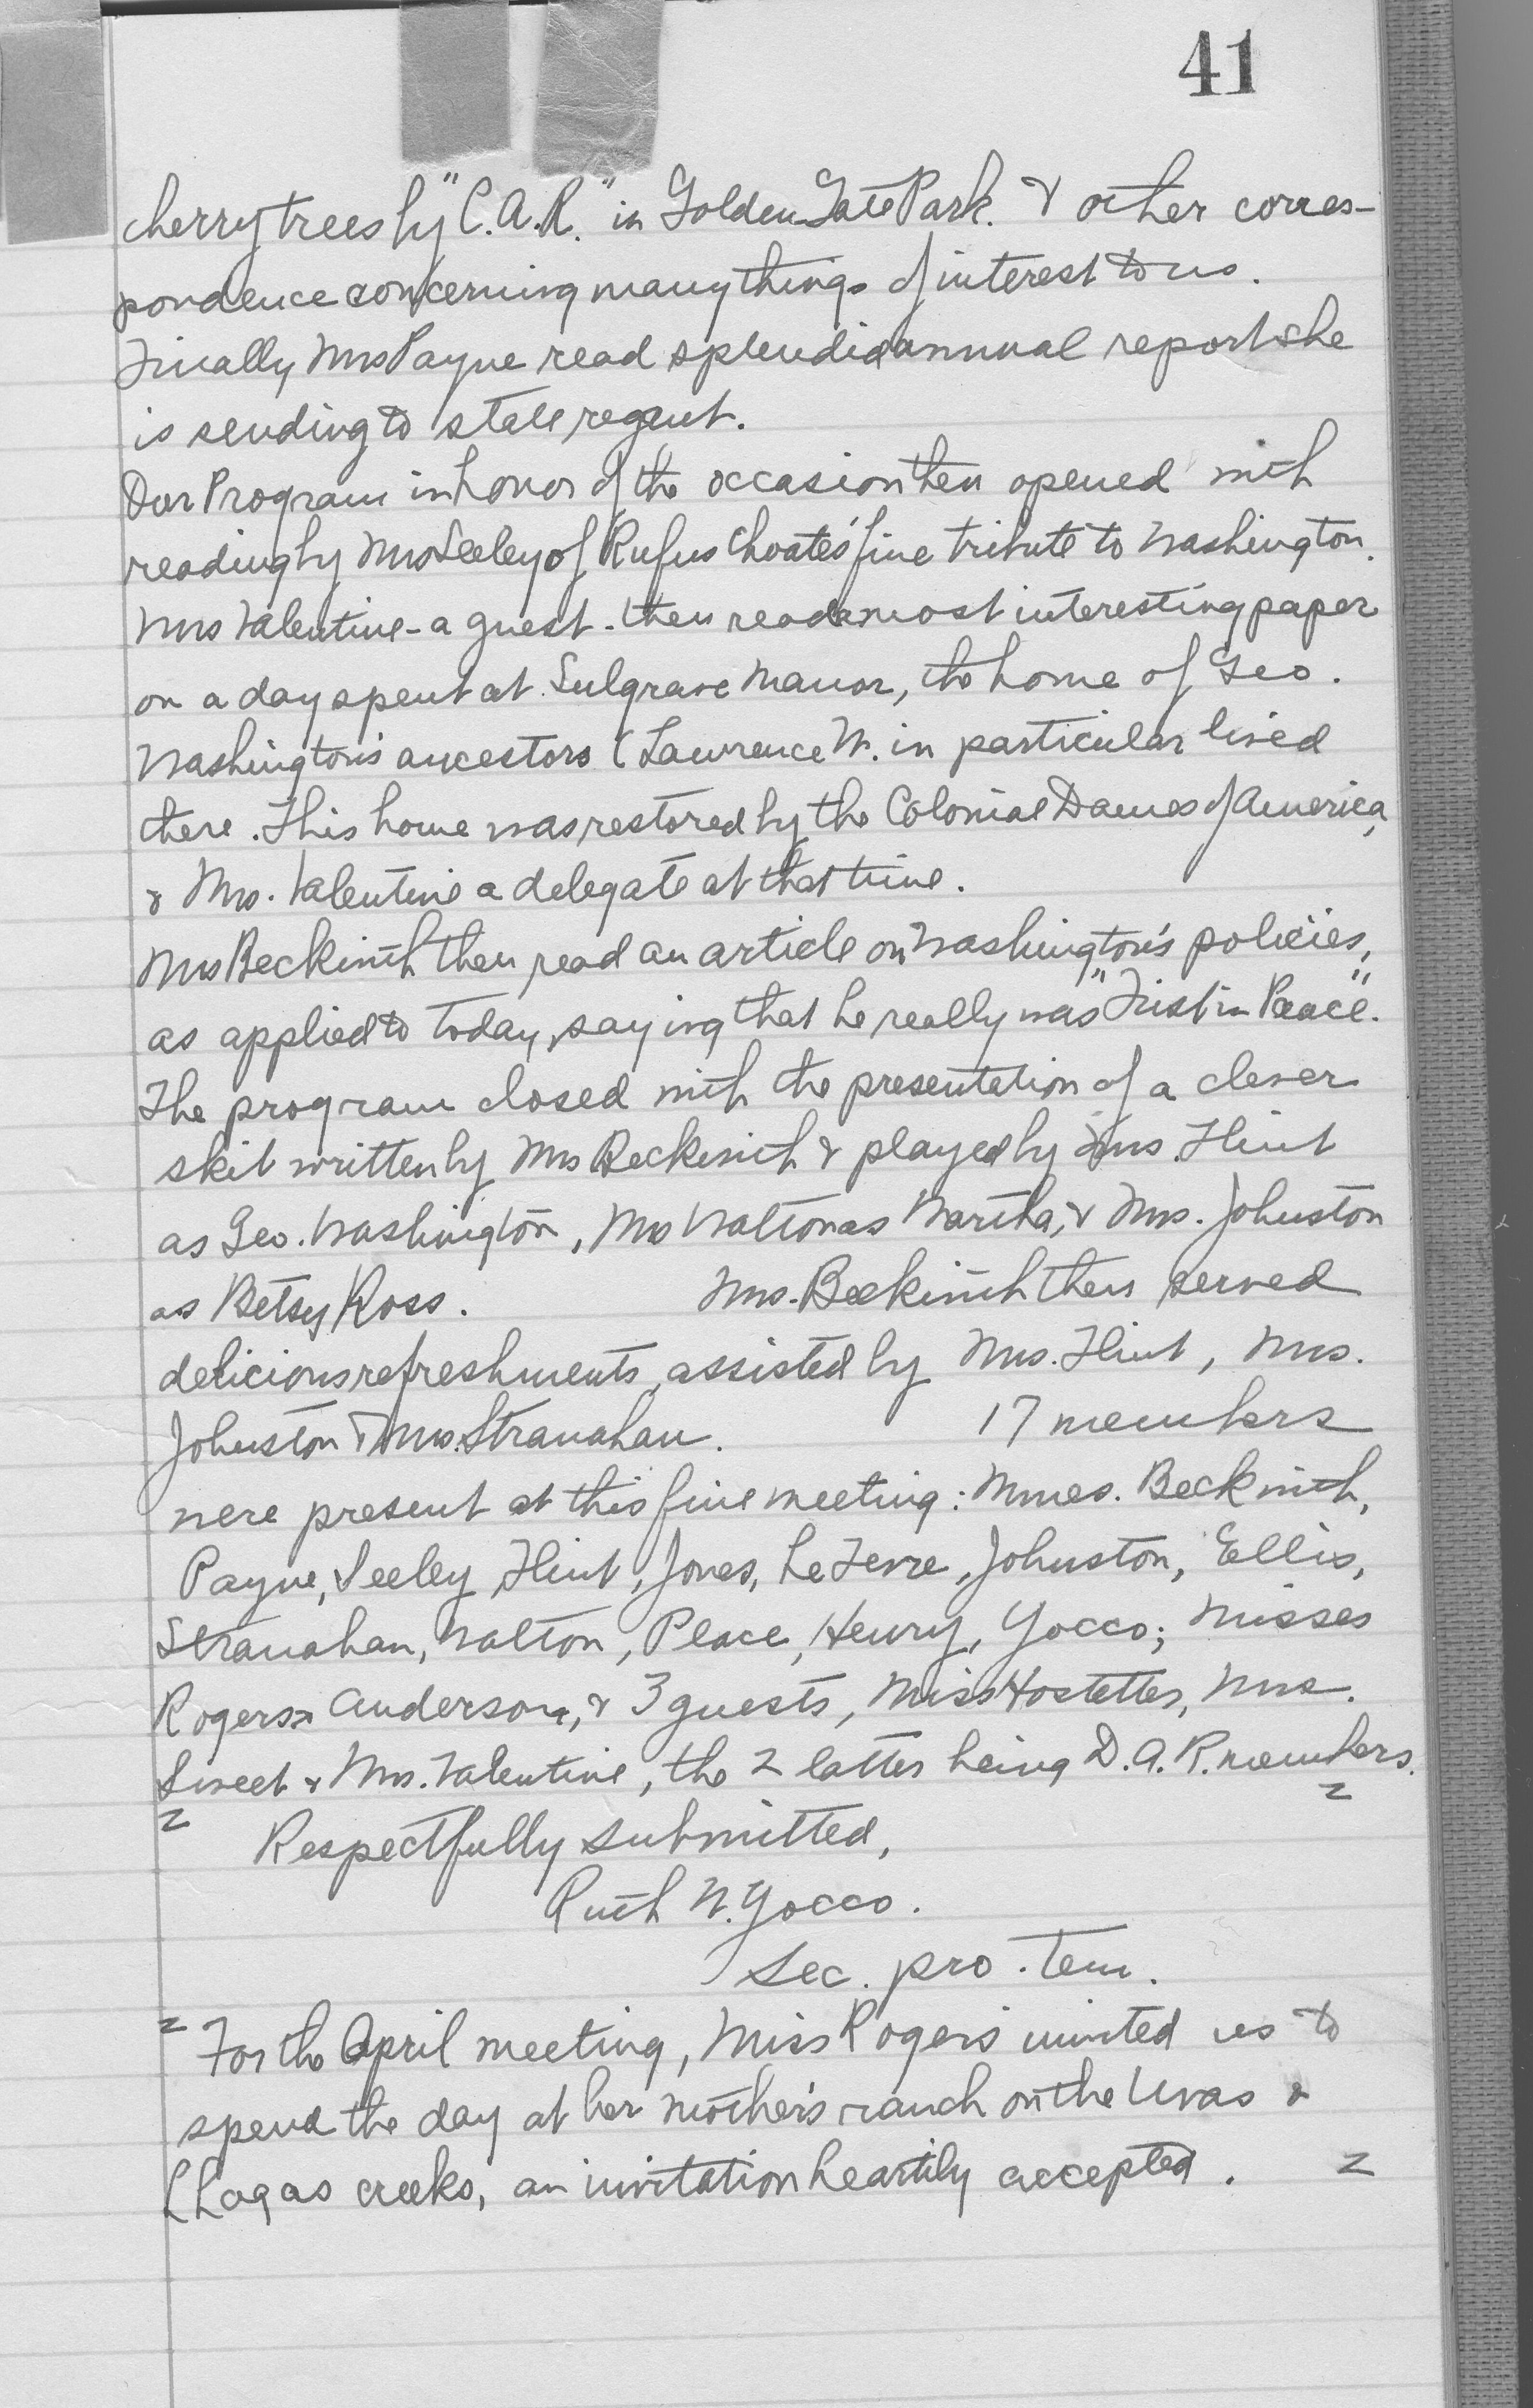 41
cherry trees by "C.A.R." in Golden Gate Park. & other corres-
pondence concerning many things of interest to us.
Finally Mrs Payne read splendid annual report she
is sending to state regent.
Our Program in honor of the occasion then opened with
reading by Mrs Seeley of Rufus Choate's fine tribute to Washington.
Mrs Valentine - a guest - then read a most interesting paper
on a day spent at Sulgrave Manor, the home of Geo.
Washington's ancestors (Lawrence W. in particular lived
there. This home was restored by the Colonial Dames of America,
& Mrs. Valentine a delegate at that time.
Mrs Beckwith then read an article on Washington's policies,
as applied to today, saying that he really was "First in Peace".
The program closed with the presentation of a clever
skit written by Mrs Beckwith & played by Mrs. Flint
as Geo. Washington, Mrs Walton as Martha, & Mrs. Johnston
as Betsy Ross. Mrs. Beckwith then served
delicious refreshments, assisted by Mrs. Flint, Mrs.
Johnston & Mrs. Stranahan. 17 members
were present at this fine meeting: Mmes. Beckwith,
Payne, Seeley, Flint, Jones, LeFevre, Johnston, Ellis,
Stranahan, Walton, Place, Henry, Yocco; Misses
Rogers & Anderson, & 3 guests, Miss Hostetter, Mrs.
Sweet & Mrs. Valentine, the 2 latter being D.A.R. members.
Respectfully submitted,
Ruth W. Yocco.
Sec. pro. tem.
For the April meeting, Miss Rogers invited us to
spend the day at her mother's ranch on the Uvas &
Llagas creeks, an invitation heartily accepted.